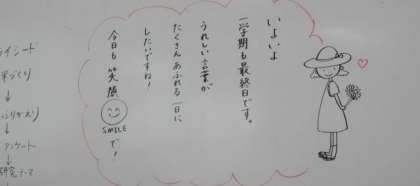 いよいよ
一学期も最終日です。
うれしい言葉が
たくさんあふれる一日に
したいですね!
今日も笑顔で!
SMILE
イシート
づくり
↓
ふりかえり
↓
アンケート
↓
研究テーマ